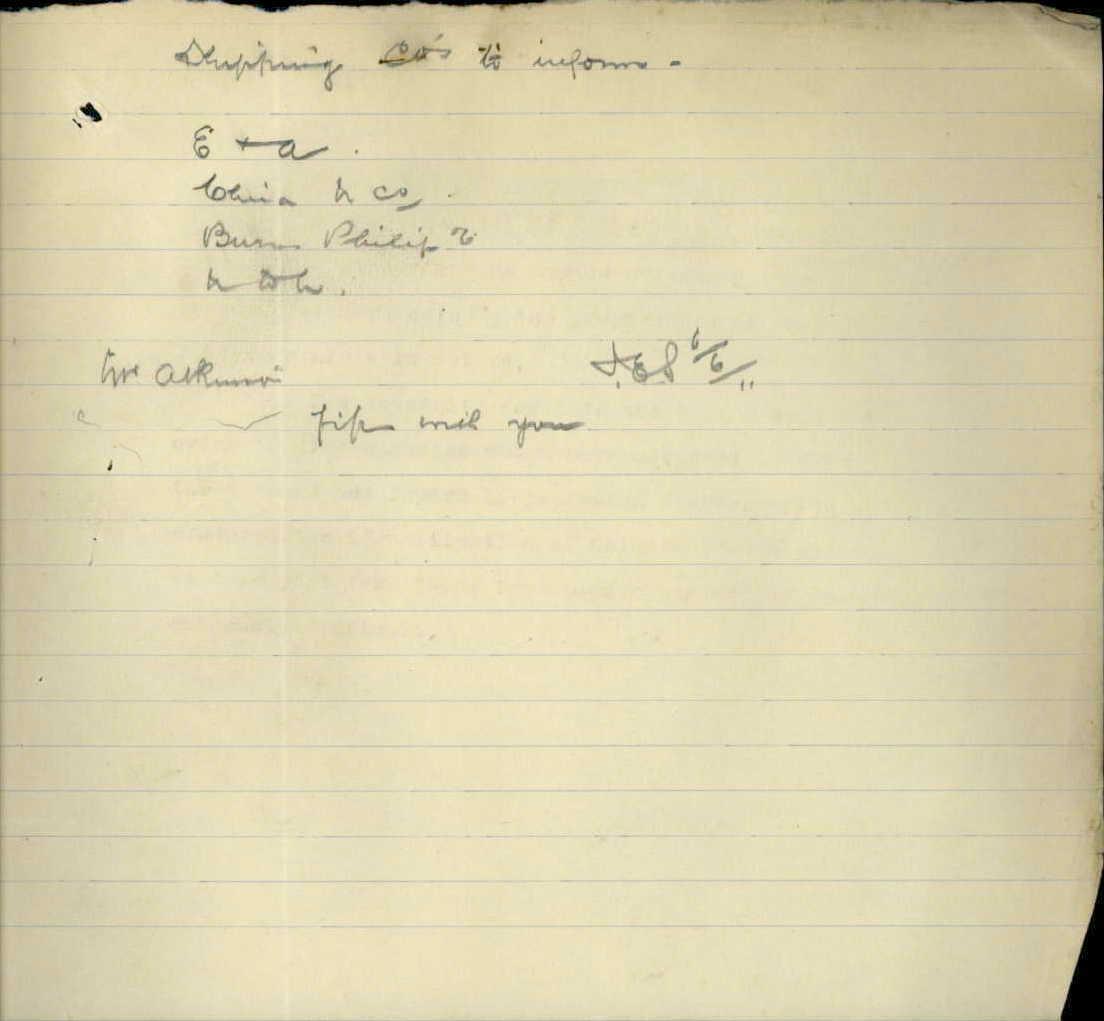 Shipping Co's to inform -
E + A.
China N Co.
Burns Philip
Mr Atkinson 6/6/11
file with you